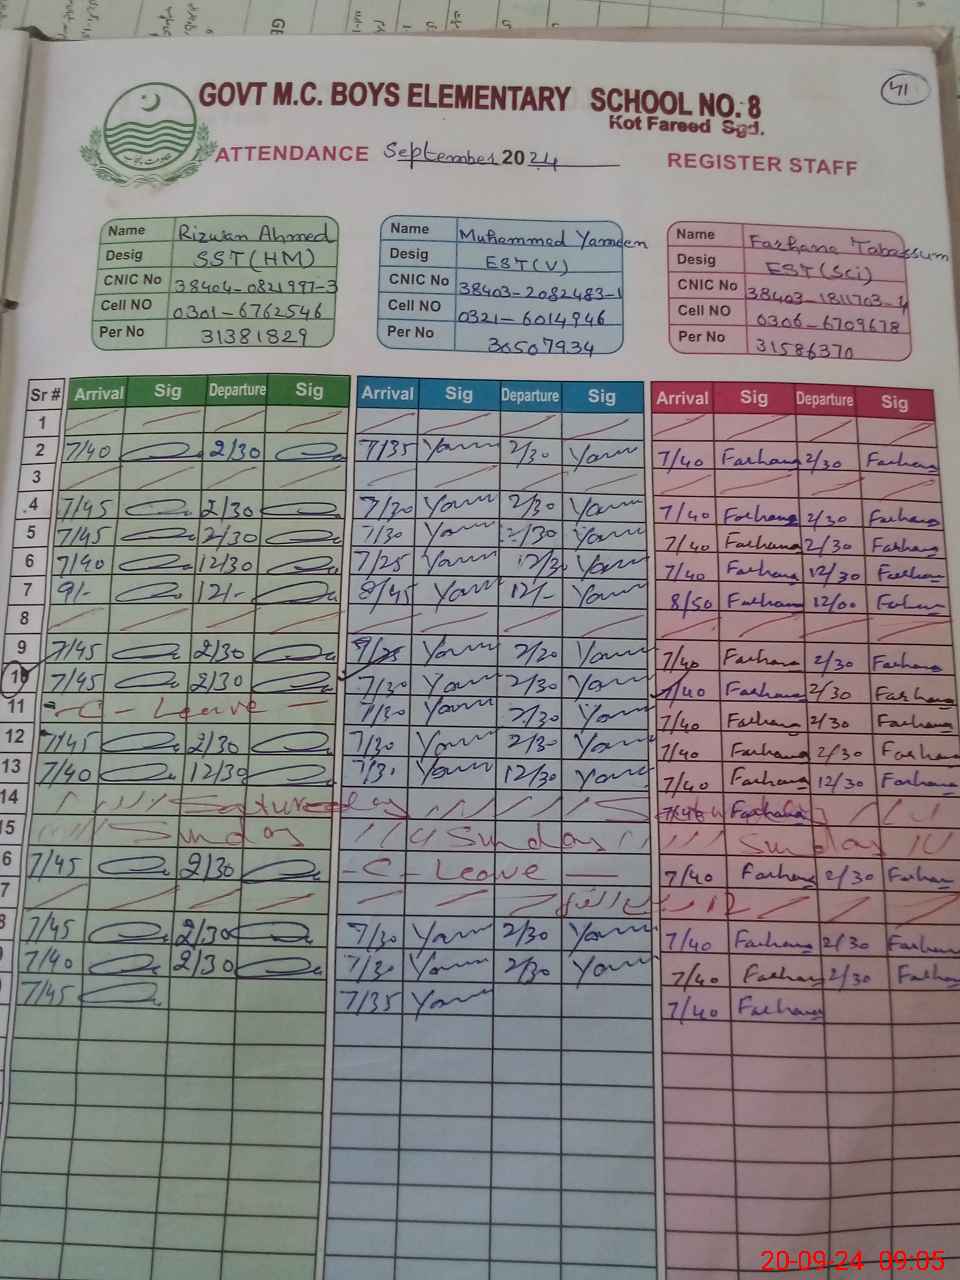 41
GOVT M.C. BOYS ELEMENTARY SCHOOL NO. 8
Kot Fareed Sgd.
ATTENDANCE September 2024 REGISTER STAFF
Name Rizwan Ahmed Name Muhammad Yameen Name Farhana Tabassum
Desig SST(HM) Desig EST(V) Desig EST(Sci)
CNIC No 38404-0821997-3 CNIC No 38403-2082483-1 CNIC No 38403-1811703-4
Cell NO 0301-6762546 Cell NO 0321-6014946 Cell NO 0306-6709678
Per No 31381829 Per No 30507934 Per No 31586370
Sr # Arrival Sig Departure Sig Arrival Sig Departure Sig Arrival Sig Departure Sig
1
2 7/40 2/30 7/35 Yam 2/30 Yam 7/40 Farhana 2/30 Farhana
3
4 7/45 2/30 7/30 Yam 2/30 Yam 7/40 Farhana 2/30 Farhana
5 7/45 2/30 7/30 Yam 2/30 Yam 7/40 Farhana 2/30 Farhana
6 7/40 12/30 7/25 Yam 12/30 Yam 7/40 Farhana 12/30 Farhana
7 9/- 12/- 8/45 Yam 12/- Yam 8/50 Farhana 12/00 Farhana
8
9 7/45 2/30 Yam 2/20 Yam 7/40 Farhana 2/30 Farhana
10 7/45 2/30 7/30 Yam 2/30 Yam 7/40 Farhana 2/30 Farhana
11 -C- Leave - 7/30 Yam 2/30 Yam 7/40 Farhana 2/30 Farhana
12 7/45 2/30 7/30 Yam 2/30 Yam 7/40 Farhana 2/30 Farhana
13 7/40 12/30 7/3 Yam 12/30 Yam 7/40 Farhana 12/30 Farhana
14 Satureday Farhana
15 Sunday Sunday Sunday
6 7/45 2/30 -C- Leave - 7/40 Farhana 2/30 Farhana
7 12 ربیع الاول
8 7/45 2/30 7/30 Yam 2/30 Yam 7/40 Farhana 2/30 Farhana
7/40 2/30 7/30 Yam 2/30 Yam 7/40 Farhana 2/30 Farhana
7/45 7/35 Yam 7/40 Farhana
20-09-24 09:05